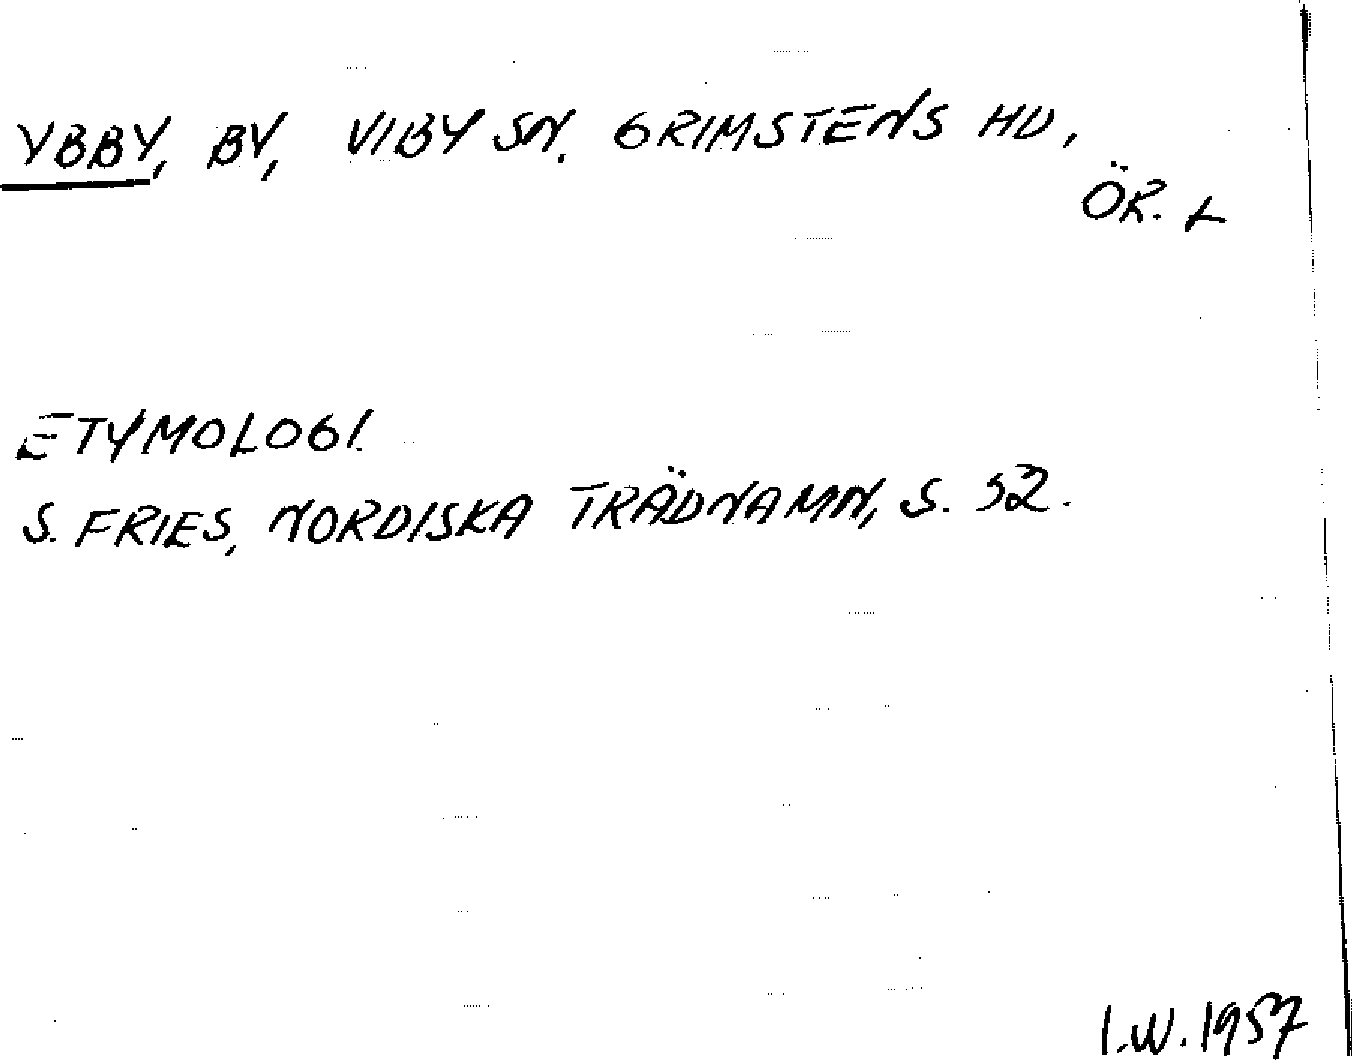 YBBY, BY, VIBY SN. GRIMSTENS HD,
ÖR. L
ETYMOLOGI.
S. FRIES, NORDISKA TRÄDNAMN, S. 52.
I.W. 1957